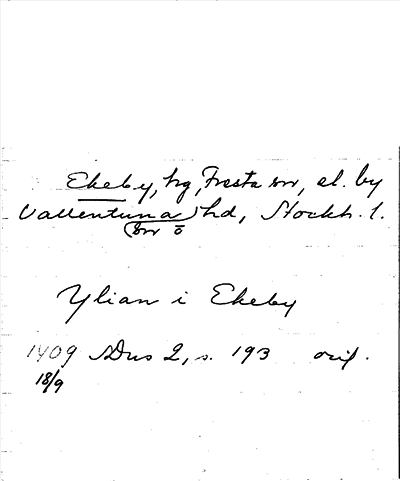 Ekeby, hg, Fresta sn, el. by
Vallentuna hd, Stockh. l.
sn ö
Ylian i Ekeby
1409 SDns 2, s. 193 orig.
18/9